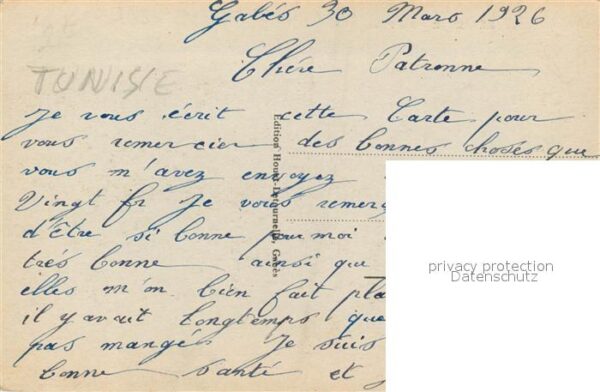 Gabés 30 Mars 1926
Chére Patronne
TUNISIE
Je vous écrit cette Carte pour
vous remercier des bonnes choses que
vous m'avez envoyez
Vingt fr Je vous remerç
d'être si bonne pour moi
trés bonne ainsi que
elles m'on bien fait pla
il y avait longtemps que
pas mangé. Je suis
bonne santé et
Edition Houel-Detournelle, Gabès
privacy protection
Datenschutz